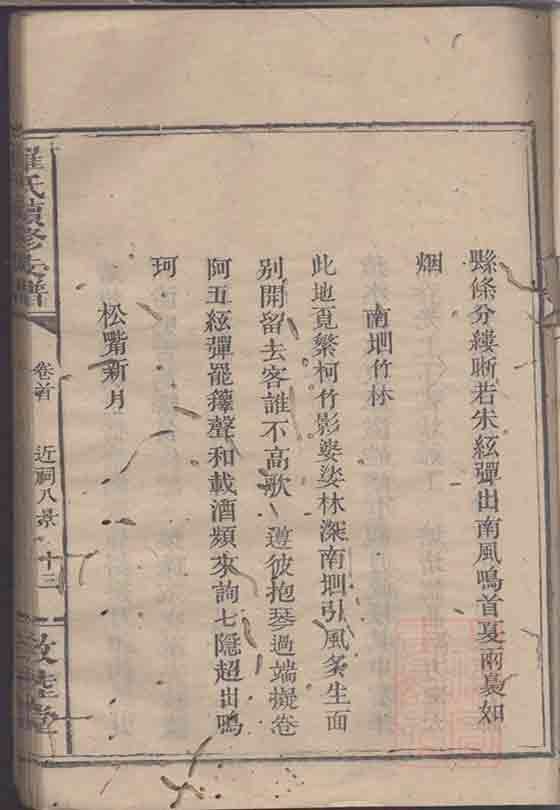 縣條分縷晰若朱絃彈出南風鳴首夏雨裊如
烟
南垇竹林
此地覓檠柯竹影婆娑林深南垇引風多生面
別開留去客誰不高歌 遵彼抱琴過端擬卷
阿五絃彈罷籜聲和載酒頻來詢七隱超出鳴
珂
松嘴新月
羅氏續修宗譜
卷首
近祠八景
十三
敦睦堂